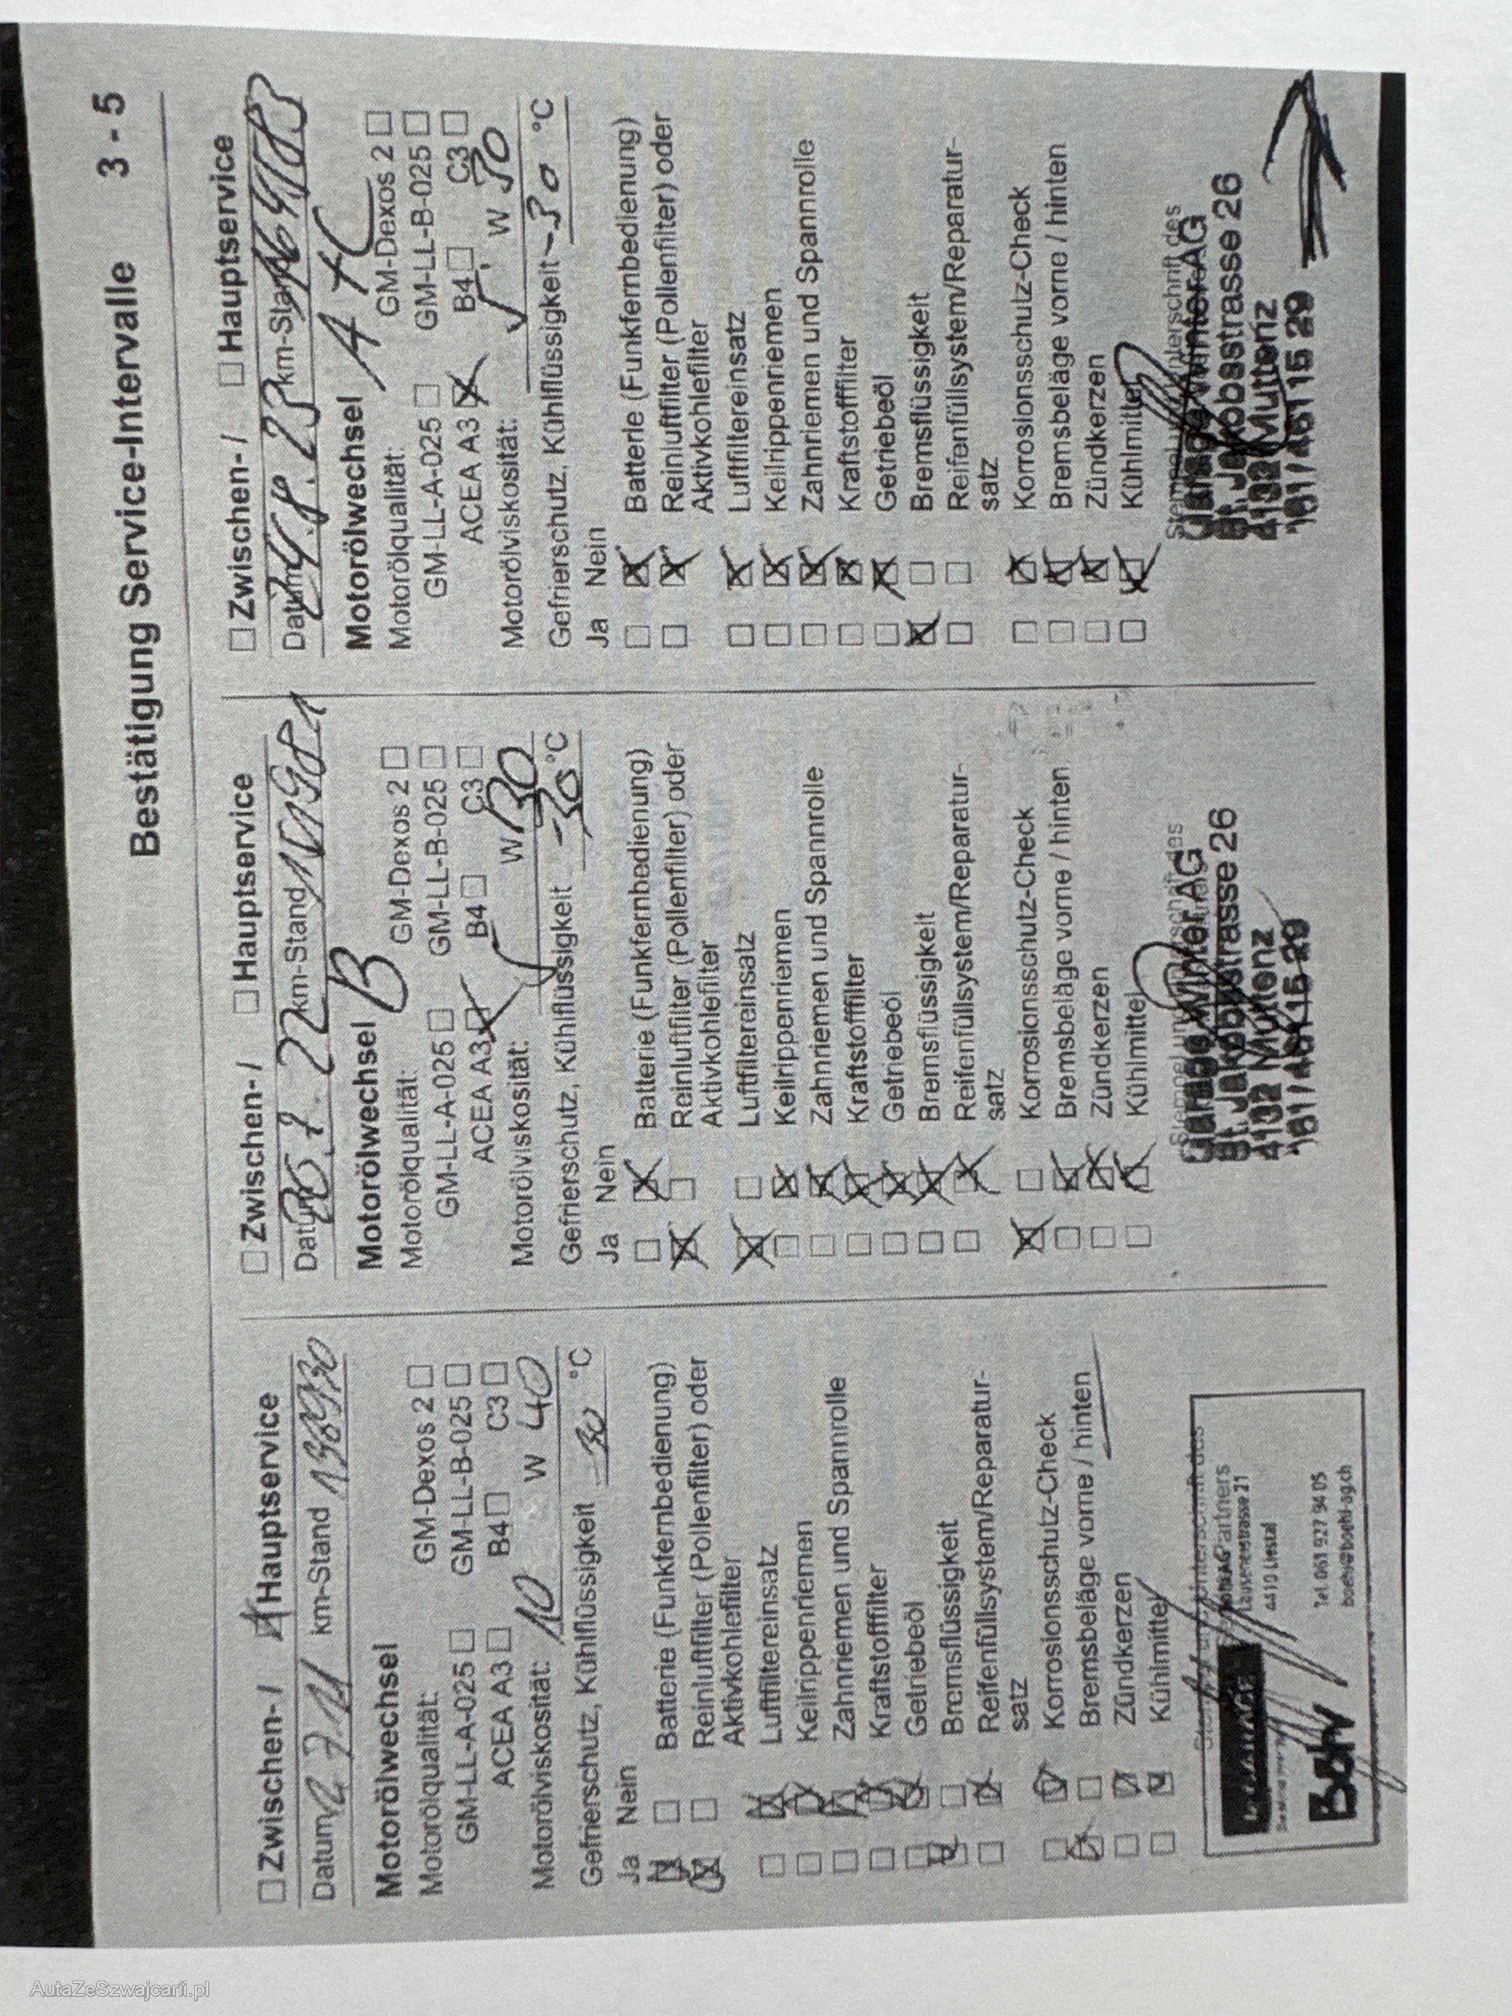 Bestätigung Service-Intervalle 3 - 5
Zwischen- / Hauptservice
Datum km-Stand 138930
Motorölwechsel
Motorölqualität: GM-Dexos 2
GM-LL-A-025 GM-LL-B-025
ACEA A3 B4 C3
Motorölviskosität: 10 W 40
Gefrierschutz, Kühlflüssigkeit -30 °C
Ja Nein
Batterie (Funkfernbedienung)
Reinluftfilter (Pollenfilter) oder
Aktivkohlefilter
Luftfiltereinsatz
Keilrippenriemen
Zahnriemen und Spannrolle
Kraftstofffilter
Getriebeöl
Bremsflüssigkeit
Reifenfüllsystem/Reparatur-
satz
Korrosionsschutz-Check
Bremsbeläge vorne / hinten
Zündkerzen
Kühlmittel
Partners
Lausenerstrasse 21
4410 Liestal
Tel. 061 927 94 05
boehl@boehl-ag.ch
Zwischen- / Hauptservice
Datum 7. 22 km-Stand
Motorölwechsel B
Motorölqualität: GM-Dexos 2
GM-LL-A-025 GM-LL-B-025
ACEA A3 B4 C3
Motorölviskosität: W 30
Gefrierschutz, Kühlflüssigkeit -30 °C
Ja Nein
Batterie (Funkfernbedienung)
Reinluftfilter (Pollenfilter) oder
Aktivkohlefilter
Luftfiltereinsatz
Keilrippenriemen
Zahnriemen und Spannrolle
Kraftstofffilter
Getriebeöl
Bremsflüssigkeit
Reifenfüllsystem/Reparatur-
satz
Korrosionsschutz-Check
Bremsbeläge vorne / hinten
Zündkerzen
Kühlmittel
Garage Winter AG
St. Jakobstrasse 26
4132 Muttenz
Zwischen- / Hauptservice
Datum 8. 23 km-Stand
Motorölwechsel A +C
Motorölqualität: GM-Dexos 2
GM-LL-A-025 GM-LL-B-025
ACEA A3 B4 C3
Motorölviskosität: W 30
Gefrierschutz, Kühlflüssigkeit -30 °C
Ja Nein
Batterie (Funkfernbedienung)
Reinluftfilter (Pollenfilter) oder
Aktivkohlefilter
Luftfiltereinsatz
Keilrippenriemen
Zahnriemen und Spannrolle
Kraftstofffilter
Getriebeöl
Bremsflüssigkeit
Reifenfüllsystem/Reparatur-
satz
Korrosionsschutz-Check
Bremsbeläge vorne / hinten
Zündkerzen
Kühlmittel
Stempel und Unterschrift des
Garage Winter AG
St. Jakobstrasse 26
4132 Muttenz
AutaZeSzwajcarii.pl